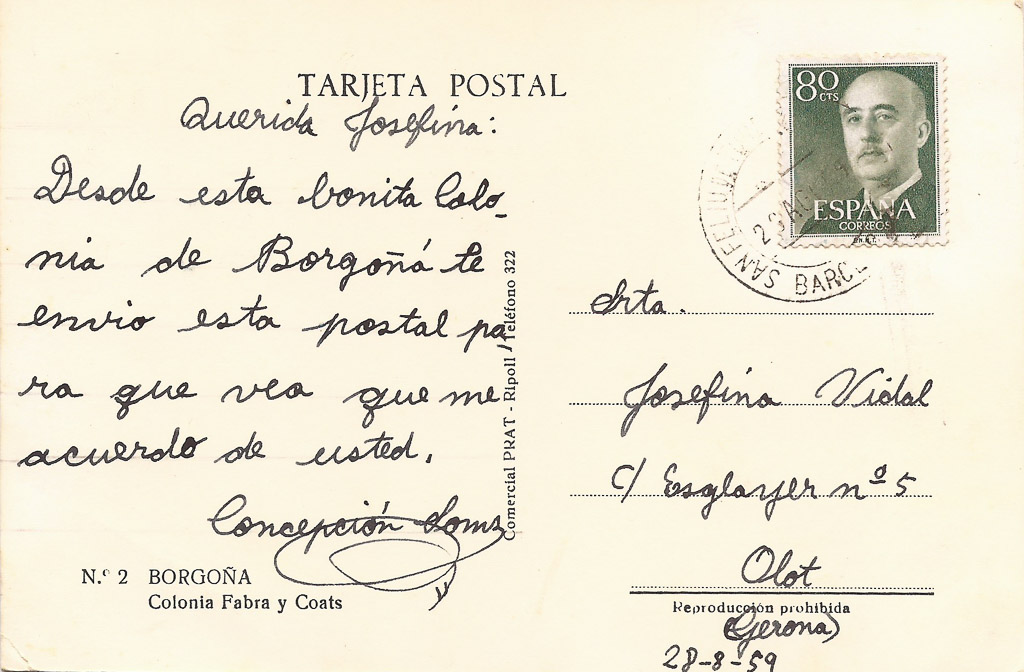 TARJETA POSTAL
Querida Josefina:
Desde esta bonita Colo-
nia de Borgoñá te
envio esta postal pa,
ra que vea que me
acuerdo de usted.
Concepción
N.º 2 BORGOÑA
Colonia Fabra y Coats
Comercial PRAT - Ripoll / Teléfono 322
80
CTS
ESPAÑA
CORREOS
SAN FELIU
BARCE
Srta.
Josefina Vidal
C/ Esglayer nº 5
Olot
Reproducción prohibida
(Gerona)
28-8-59